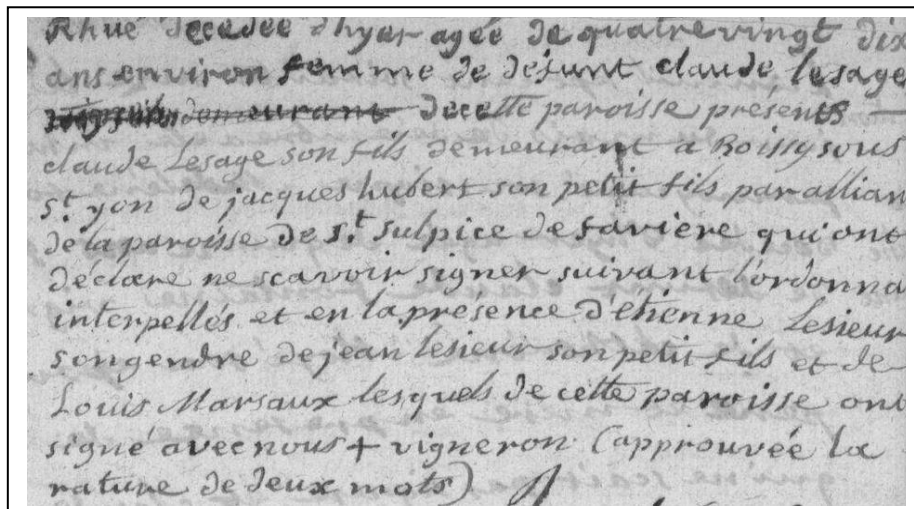 Rhué decedée d'hyer agée de quatre vingt dix
ans environ femme de défunt claude lesage
demeurant de cette paroisse présents —
claude Lesage son fils demeurant a Boissy sous
s.t yon de jacques hubert son petit fils par allian
de la paroisse de s.t sulpice de favière qui ont
déclare ne scavoir signer suivant l'ordonna
interpellés et en la présence d'etienne Lesieur
son gendre de jean lesieur son petit fils et de
Louis Marsaux lesquels de cette paroisse ont
signé avec nous + vigneron (approuvée la
rature de deux mots)